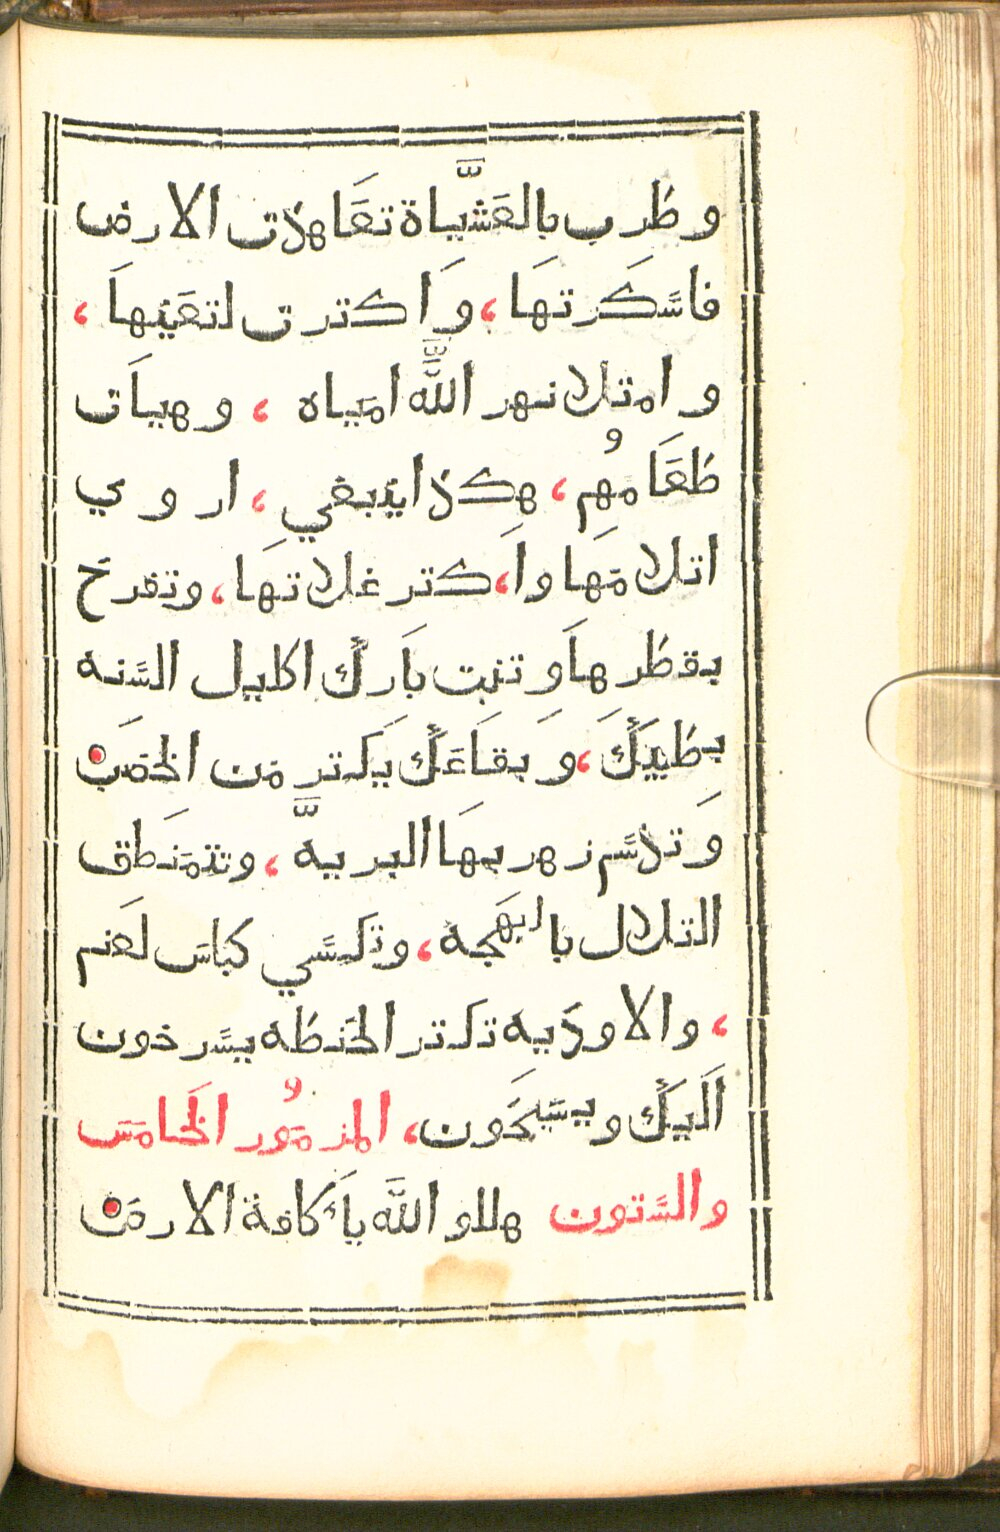 وطرب بالعَشيَّاة تعَاهدت الارض
فاسَّكَرتهَا، وَاكترت لتعَينهاَ،
وامتلا نهر اللّٰه امَياه ، وهياَت
طعَامهُم، هكذا ينبغي، اروي
اتلامَها واَ،كتر غلاتهَا، وتفرحَ
بقطرهاَ وتنبت باَرك اكليل السَّنه
بطيبَك، وَبقاعَك يَكتر مَن الخصَب
وَتدسَّم زهر بهَا البريهَّ، وتتمَنطَق
التلال باابهَجة، وتكسَّي كباسَ لغَنم
، والاوديَه تكتر الحَنطَه يسَّرخون
اَليَك ويسَبحَون، المزمَوُر الخَامسَ
والسَّتون هللو اللَّه ياَ كافة الارضَ